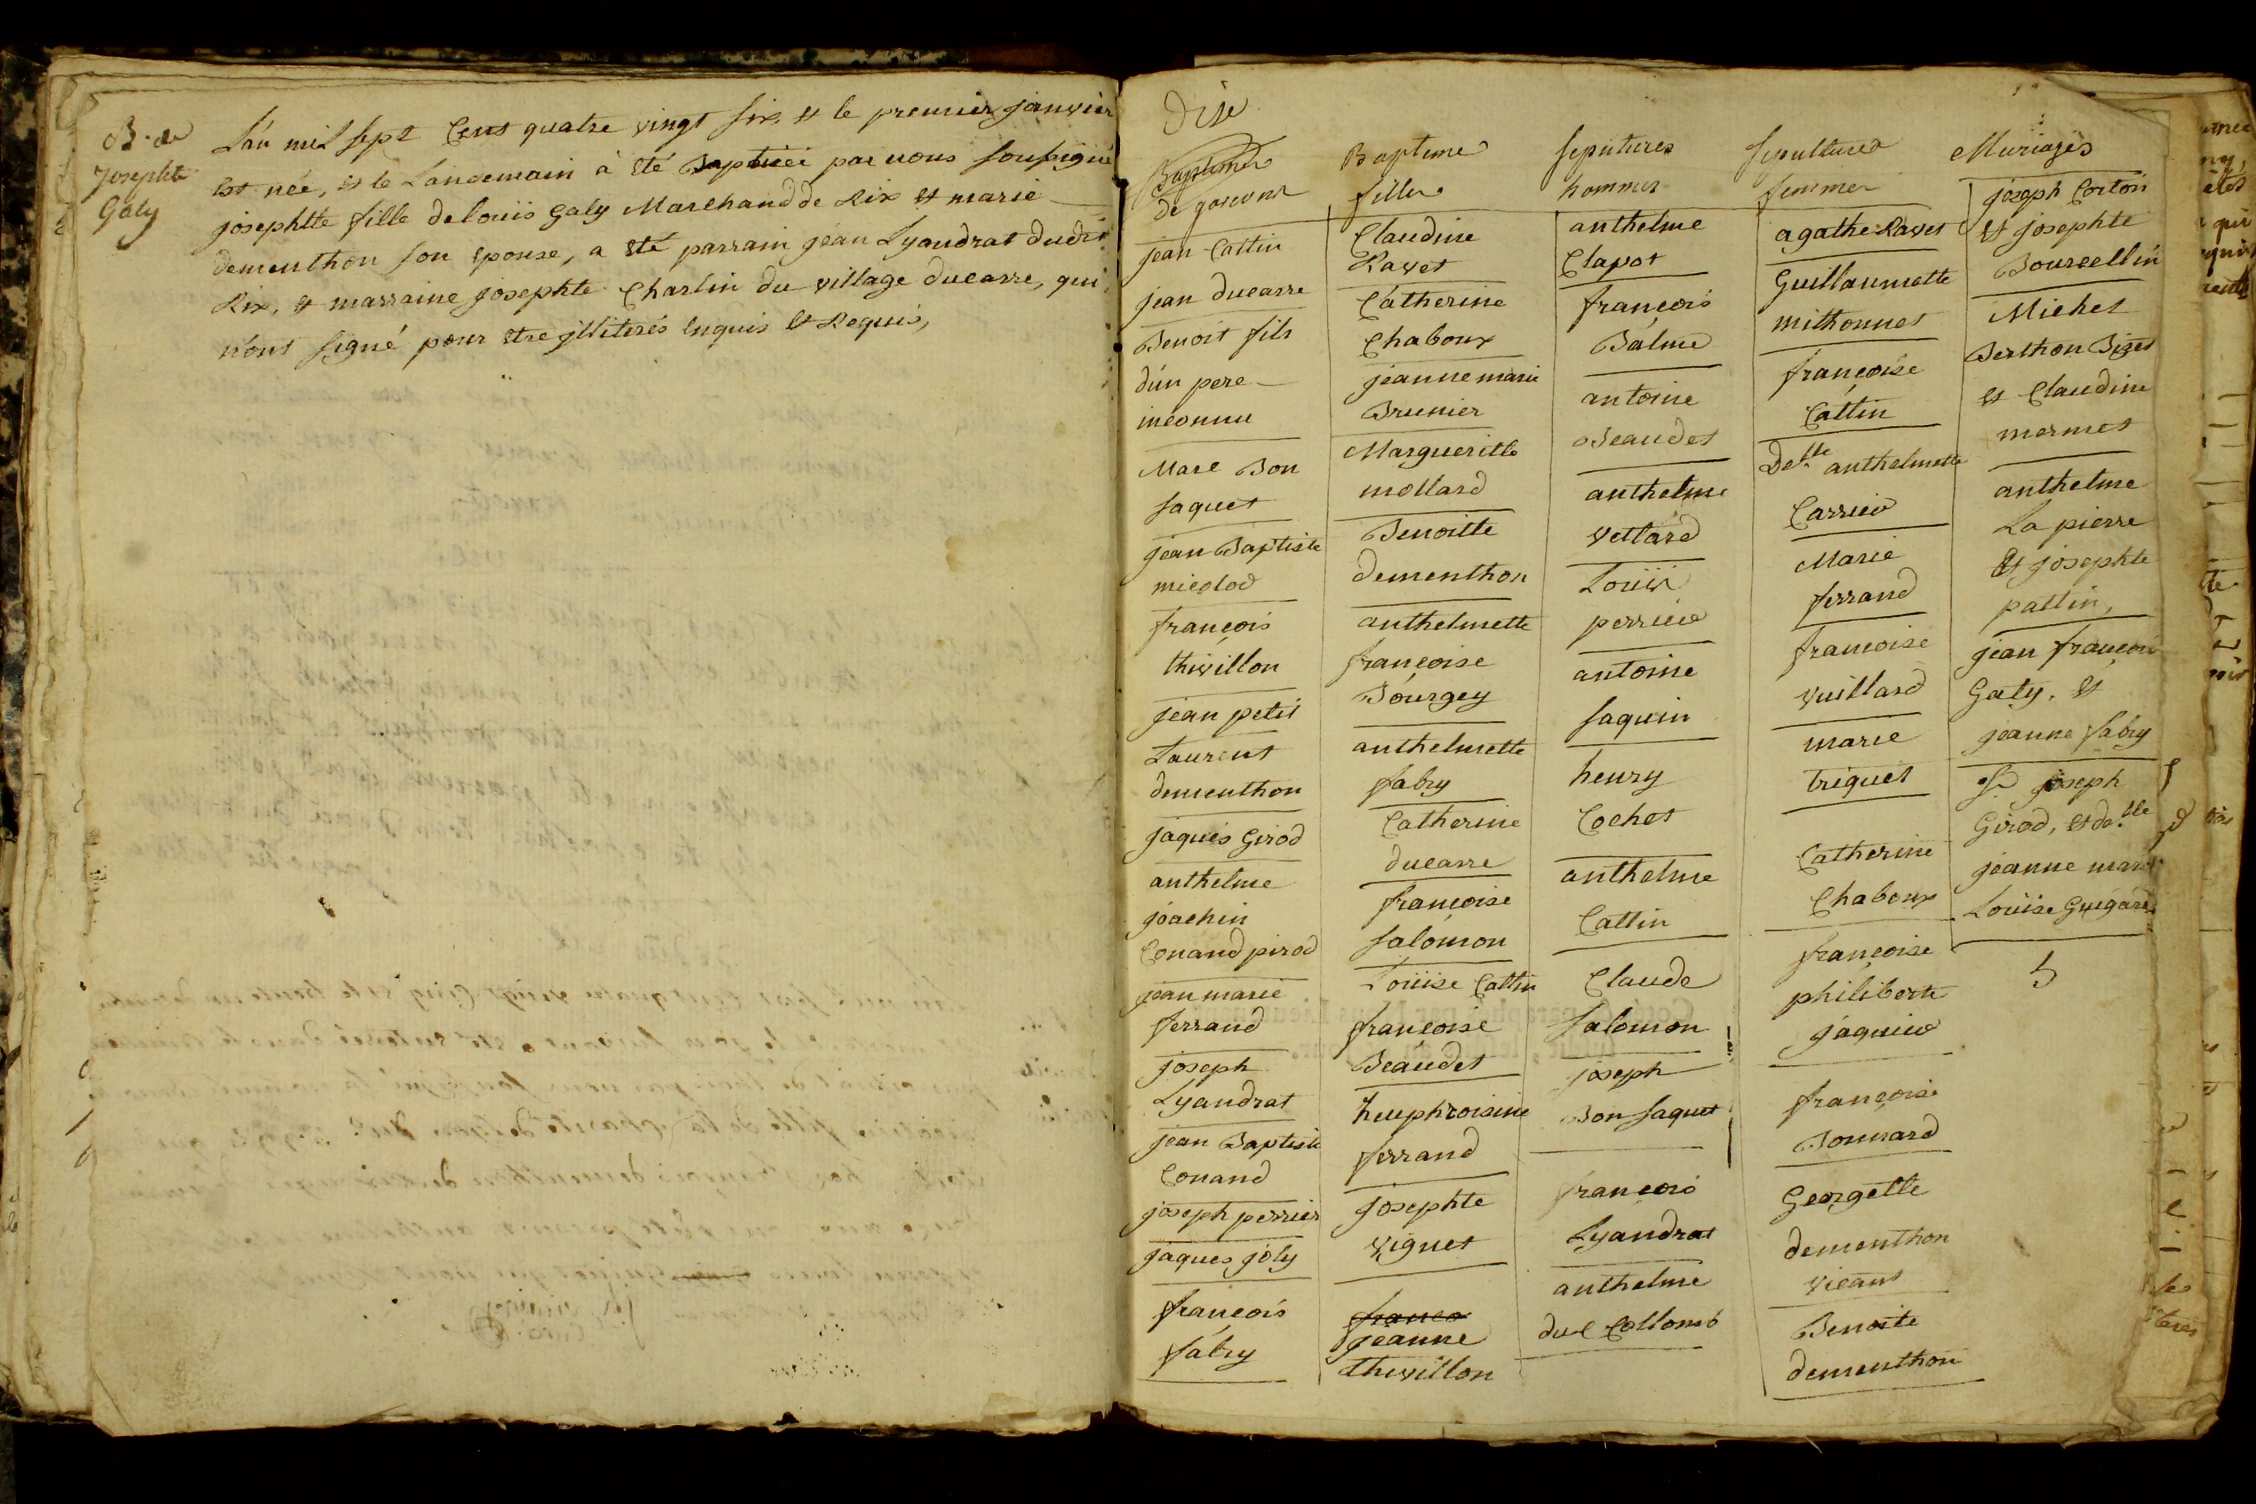 B. de
Josephte
Galy
L'an mil sept Cent quatre vingt six, et le premier janvier
est née, et le Landemain à été Baptisée par nous soussigné
josephtte fille de louïs Galy Marchand de Rix et marie
dementhon son epouse, a été parrain jean Lyaudrat dudit
Rix, et marraine josephte Charlin du village ducarre, qui
n'ont signé pour etre jlliterés enquis et Requis,
Baptemes
de garcons
jean Cattin
jean ducarre
Benoit fils
d'un pere
inconnu
Marc Bon
Jaquet
jean Baptiste
micolod
françois
thivillon
jean petit
Laurent
dementhon
jaques Girod
anthelme
joachin
Conand pirod
jean marie
ferrand
joseph
Lyaudrat
jean Baptiste
Conand
joseph perrier
jaques joly
françois
fabry
Baptemes
filles
Claudine
Ravet
Catherine
Chaboux
jeanne marie
Brunier
Margueritte
mollard
Benoitte
dementhon
anthelmette
françoise
Bourgey
anthelmette
fabry
Catherine
ducarre
françoise
salomon
Louïse Cattin
françoise
Beaudet
heuphroisine
ferrand
josephte
viguet
franco
jeanne
thivillon
sepultures
hommes
anthelme
Clapot
françois
Balme
antoine
Beaudet
anthelme
vettard
Louïs
perrier
antoine
jaquin
henry
Cochet
anthelme
Cattin
Claude
salomon
joseph
Bon Jaquet
françois
Lyaudrat
anthelme
duc Collomb
sepultures
femmes
agathe Ravet
Guillaumette
mithonnet
françoise
Cattin
Delle anthelmette
Carrier
Marie
ferrand
françoise
vuillard
marie
triquet
Catherine
Chaboux
françoise
philiberte
jaquier
françoise
Bonnard
Georgette
dementhon
vicant
Benoite
dementhon
Mariages
joseph Corton
et josephte
Bourcellin
Michel
Berthon Bizet
et Claudine
mermet
anthelme
La pierre
Et josephte
pattin,
jean françois
Galy, et
jeanne fabry
Sr joseph
Girod, et delle
jeanne marie
Louïse Guigard
5